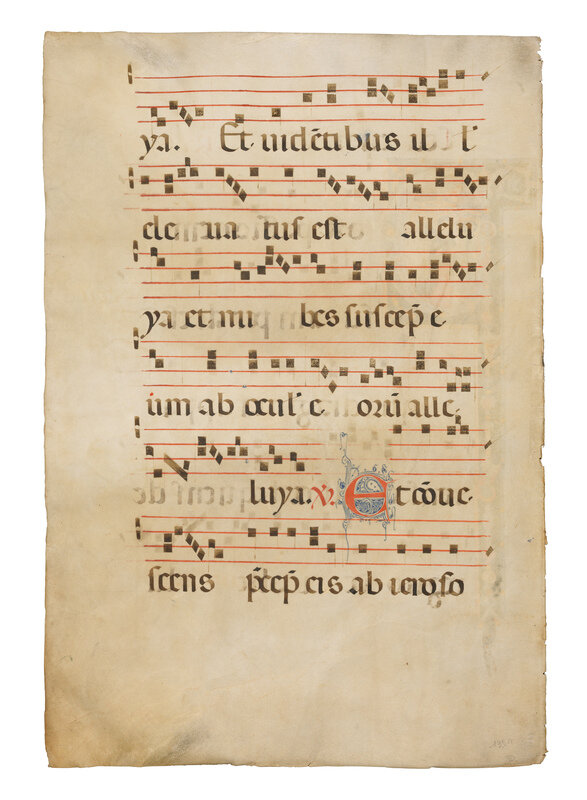 ya. Et uidētibus il l'
ele ua tus est allelu
ya et nu bes suscep̄ e
um ab ocul' e orū alle
luya. V. Et cōue
scens p̄cep̄ eis ab ieroso